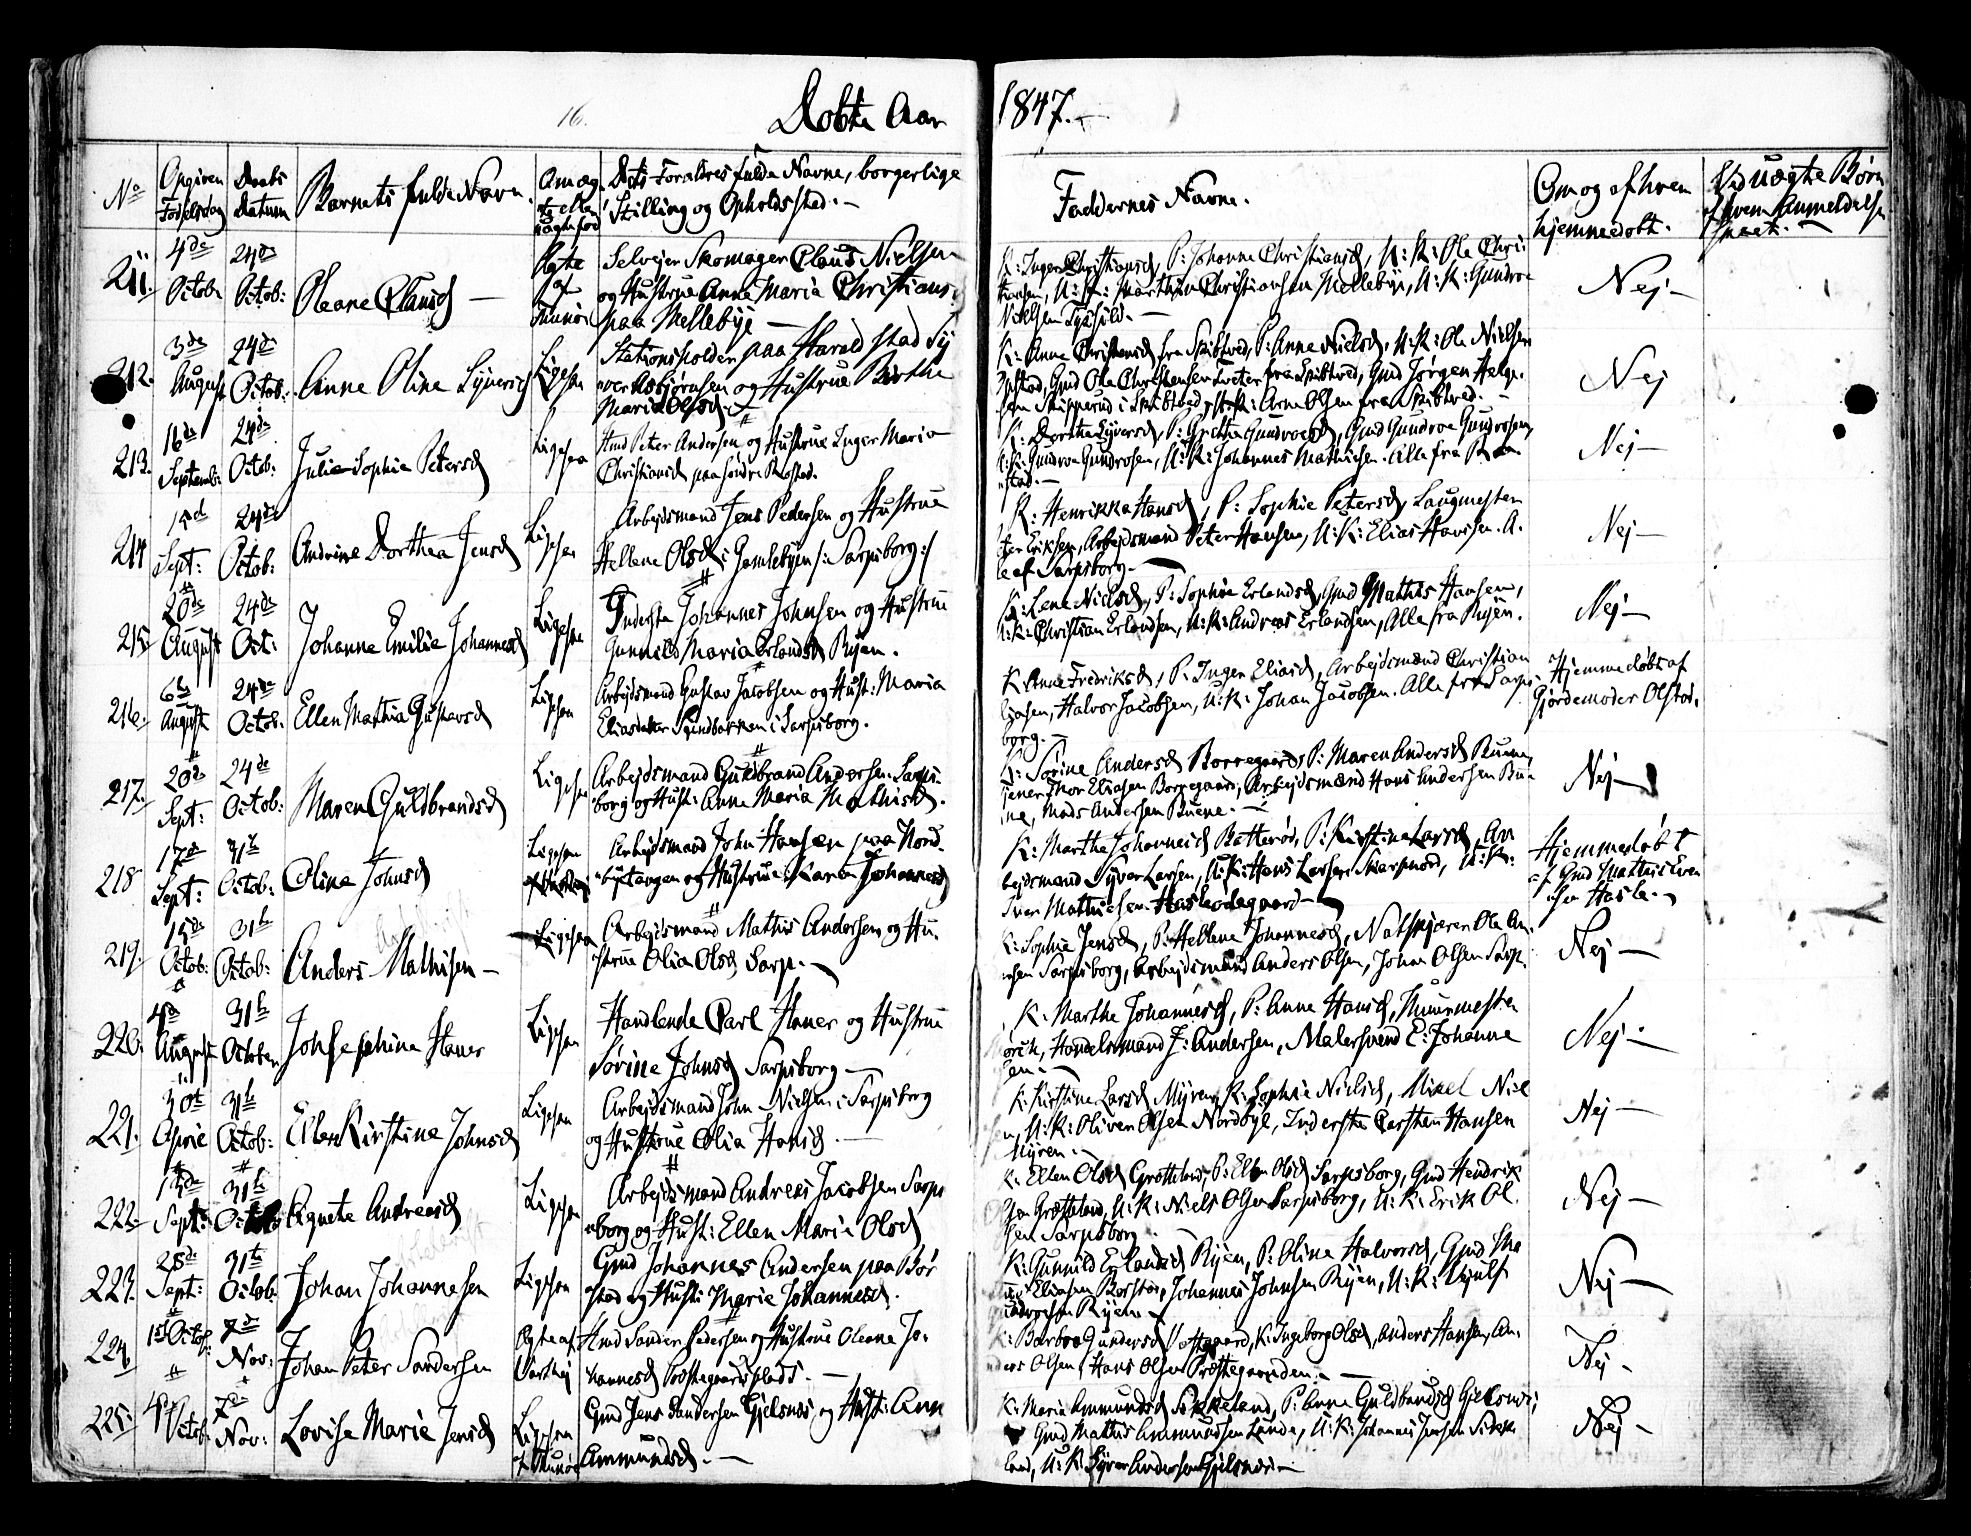 16.
Døbte Aar
1847.
No
Opgiven Fødselsdag
Daabs Datum
Barnets fulde Navn.
Om ægte eller uægte fød
Dets Forældres fulde Navne, borgerlige
Stilling og Opholdssted.
Faddernes Navne.
Om og af hvem
hjemmedøbt.
Ved uægte Børn
af hvem Anmeldelse
skeet.
211.
4de Octob:
24de Octob:
Oleane Clausd
Ægte
Selvejer Skomager Claus Nielsen
og Hustrue Anne Maria Christians
paa Mellebye
K: Inger Christiansd, P: Johanne Christiansd, U: K: Ole Chri
Marthin Christiansen Mellebye, U: K: Gundroe
Nielsen
Nej
212.
3de August
24de Octob:
Anne Oline Syversd
Ligesaa
Stationsholder paa Harald stad Sy
ver Asbjørnsen og Hustrue Birthe
Maria Olsd.
K: Anne Christensd fra Skibtved, P: Anne Nielsd, U: K: Ole Nielsen
Gmd Ole Christensen Tveter fra Skibtved, Gmd Jørgen Helge
sen Skipperud i Skibtved, Arne Olsen fra Skibtved.
Nej
213.
16de Septemb:
24de Octob:
Julie Sophie Petersd
Ligesaa
Hmd Peter Andersen og Hustrue Inger Maria
Christiansd paa søndre
K: Dorthe Syversd, P: Grethe Gundroesd, Gmd Gundroe Gundrosen,
U: K: Gundroe Gundrosen, U: K: Johannes Mathisen. Alle fra
stad.
Nej
214
15d Sept:
24de Octob:
Andrine Dorthea Jensd
Ligesaa
Arbejdsmand Jens Pedersen og Hustrue
Hellene Olsd i Gamlebyen /: Sarpsborg :/
K: Henrikka Hansd, P: Sophie Petersd, Laugmester
ter Eriksen, Arbejdsmand Peter Hansen, U: K: Elias Hansen. A.
le af Sarpsborg.
Nej
215
20de August
24de Oct:
Johanne Emilie Johannesd
Ligesaa
Inderste Johannes Johnsen og Hustrue
Gunnild Maria Erlandsd Ryen.
K: Lene Nielsd, P: Sophie Erlandsd, Gmd Mathis Hansen,
U: K: Christian Erlandsen, U: K: Andreas Erlandsen, Alle fra Ryen.
Nej
216.
6te August
24de Octob:
Ellen Mathia Gustavsd
Ligesaa
Arbejdsmand Gustav Jacobsen og Hust: Maria
Eliasdatter Sandbakken i Sarpsborg.
K: Anne Fredriksd, P: Inger Eliasd, Arbejdsmænd Christian
Eliasen, Halvor Jacobsen, U: K: Johan Jacobsen. Alle fra Sarps
borg.
Hjemmedøbt af
Gjordemoder Olstad.
217.
20de Sept:
24de Octob:
Maren Guldbrandsd
Ligesaa
Arbejdsmand Guldbrand Andersen Sarps
borg og Hust: Anne Maria Mathisd.
K: Sorine Andersd Borregaard, P: Maren Andersd Buene,
Thor Eliasen Borregaard, Arbejdsmænd Hans Andersen Bu
ene, Mads Andersen Buene.
Nej
218
17de Sept:
31te Octob:
Oline Johnsd
Ligesaa
Arbejdsmand John Hansen paa Nord
bytangen og Hustrue Karen Johannesd
K: Marthe Johannesd Batterød, P: Kirstine Larsd, Ar
bejdsmænd Syver Larsen, U: K: Hans Larsen Skarpnord, U: K:
Iver Mathisen Haslodegaard
Hjemmedøbt
af Gmd Mathis Even
sen Hasle.
219.
15de Octob:
31te Octob:
Anders Mathisen
Ligesaa
Arbejdsmand Mathis Andersen og Hu.
strue Olia Olsd Sarp.
K: Sophie Jensd, P: Hellene Johannesd, Natskjæren Ole An
Sarpsborg, Arbejdsmænd Anders Olsen, Johan Olsen Sarp.
Nej
220.
4de August
31te October
Johsephine Haner
Ligesaa
Handlende Carl Haner og Hustrue
Sørine Johnsd Sarpsborg
K: Marthe Johannesd, P: Anne Hansd, Muurmester
Handelsmand J: Andersen, Malersvend E: Johanne
sen.
Nej
221.
30te Aprie
31te Octob:
Ellen Kirstine Johnsd
Ligesaa
Arbejdsmand John Nielsen i Sarpsborg
og Hustrue Olia Hansd.
K: Kirstine Larsd Myren, K: Sophie Nielsd, Mikel Niel
sen, U: K: Oliver Olsen Nordbye, Inderste Carsten Hansen
Myren.
Nej
222.
15de Sept:
31te Octob:
Agnete Andreasd
Ligesaa
Arbejdsmand Andreas Jacobsen Sarps
borg og Hust: Ellen Marie Olsd
K: Ellen Olsd Grotteland, P: Ellen Olsd Sarpsborg, Gmd Hendrik
sen Grotteland, U: K: Niels Olsen Sarpsborg, U: K: Erik Ol.
sen Sarpsborg
Nej
223.
28de Sept:
31te Octob
Johan Johannesen
Ligesaa
Gmd Johannes Andersen paa Bør
stad og Hust: Marie Johannesd.
K: Gunnild Erlandsd Ryen, P: Oline Halvorsd, Gmd Tho
Eliasen Børstad, Johannes Johnsen Ryen, U: K:
Ryen
Nej
224.
1ste Octob:
7de Nov:
Johan Peter Sandersen
Ægte af Varteig
Hmd Sander Pedersen og Hustrue Oleane Jo.
hannesd Præstegaards plads.
K: Barbro Gundersd K: Ingeborg Olsd, Anders Hansen, An.
ders Olsen, Hans Olsen Præstegaarden.
Nej
225:
4de Octob.
7de Nov:
Lovise Marie Jensd
Ligesaa
Gmd Jens Sandersen Gjelsnes og Hust: Ann
Ammundsd.
K: Maria Ammundsd P: Anne Guldbrandsd Gjelsnes,
Gmd Mathis Ammundsen Lunde, U: K: Johannes Jensen
land, U: K: Syver Andersen Gjelsnes
Nej